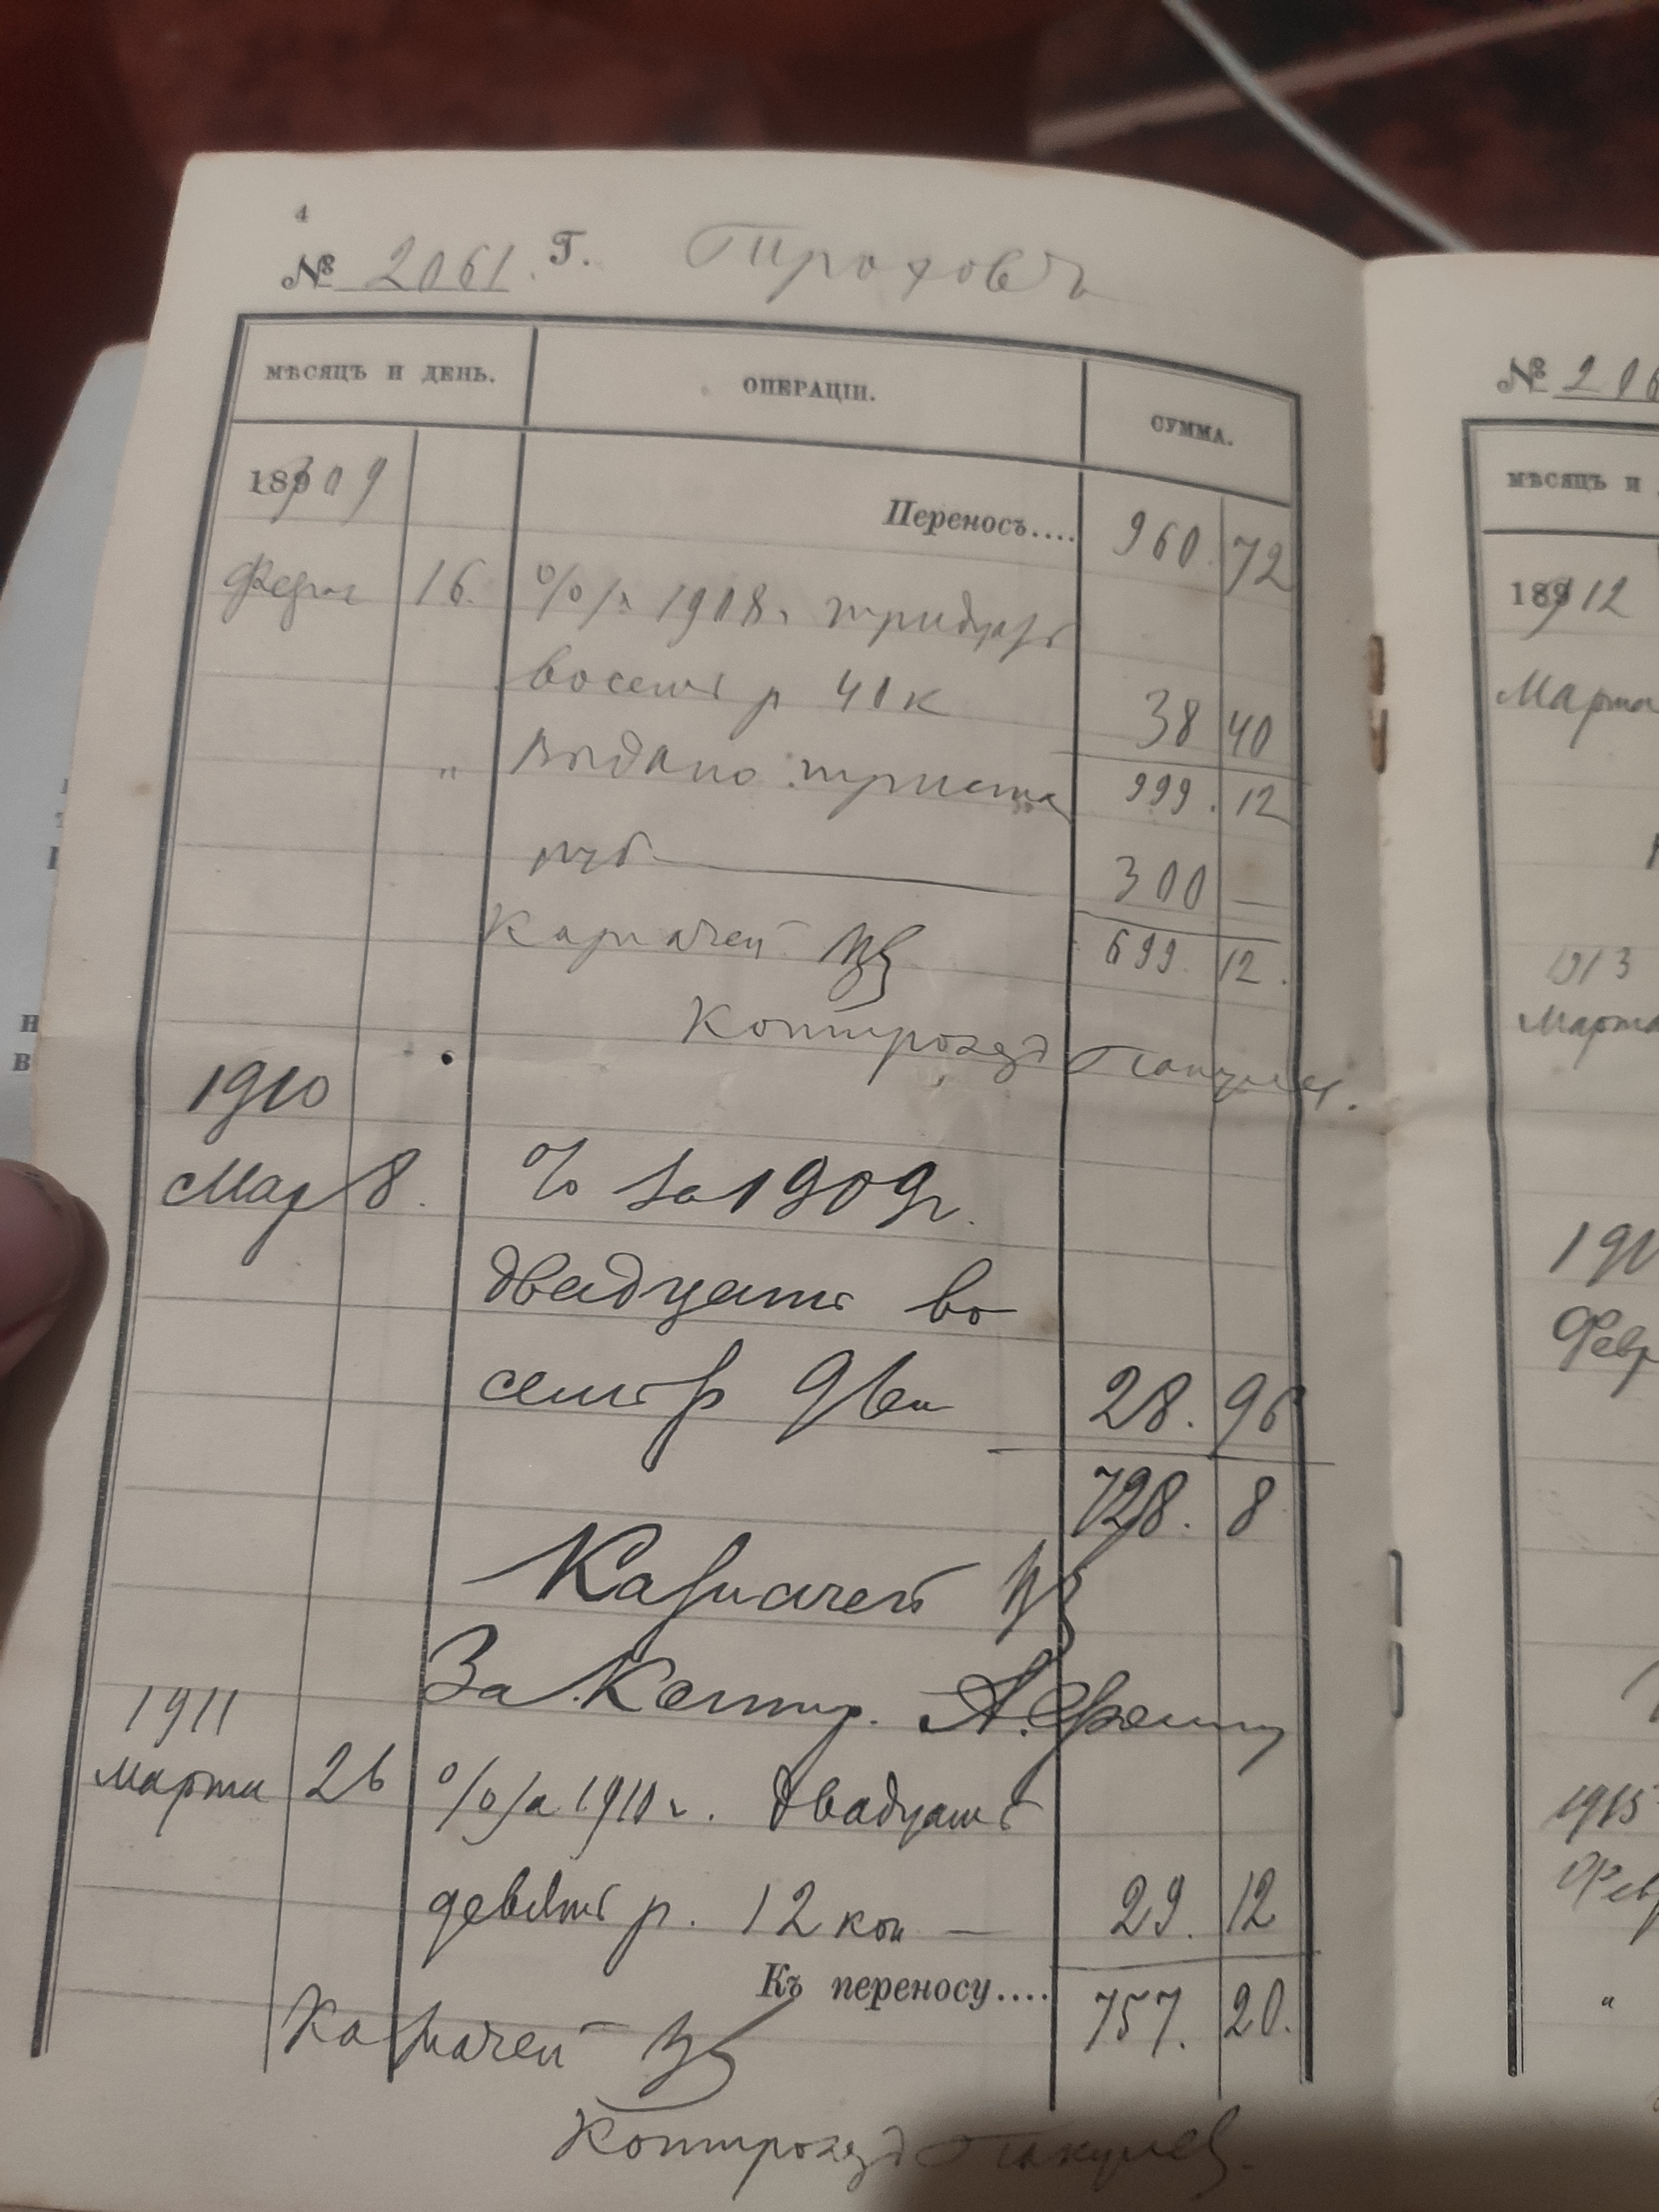 4
№ 2061. Г. Проховъ
МѢСЯЦЪ И ДЕНЬ. ОПЕРАЦІИ. СУММА.
1909 Переносъ.... 960. 72
16. % за 1908 г. тридцать
восемь р 40 к 38 40
" Выдано триста 999. 12
руб 300 —
Казначей 699. 12.
Контролер
1910
Мар 8. % за 1909 г.
двадцать во
семь р 96 к 28. 96
728. 8
Казначей
За Контр. А.
1911
марта 26 % за 1910 г. двадцать
девять р. 12 коп — 29. 12
Къ переносу.... 757. 20.
Казначей
Контролер
№ 206
МѢСЯЦЪ И
1912
Марта
1913
Марта
191
Февр
1915
Фев
"